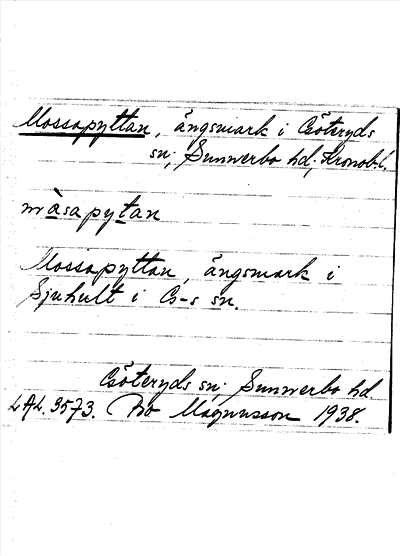 Mossapyttan, ängsmark i Göteryds
sn; Sunnerbo hd; Kronob.l.
màsapytan
Mossapyttan, ängsmark i
Sjuhult i G-s sn.
Göteryds sn; Sunnerbo hd
LAL. 3573. Bo Magnusson 1938.